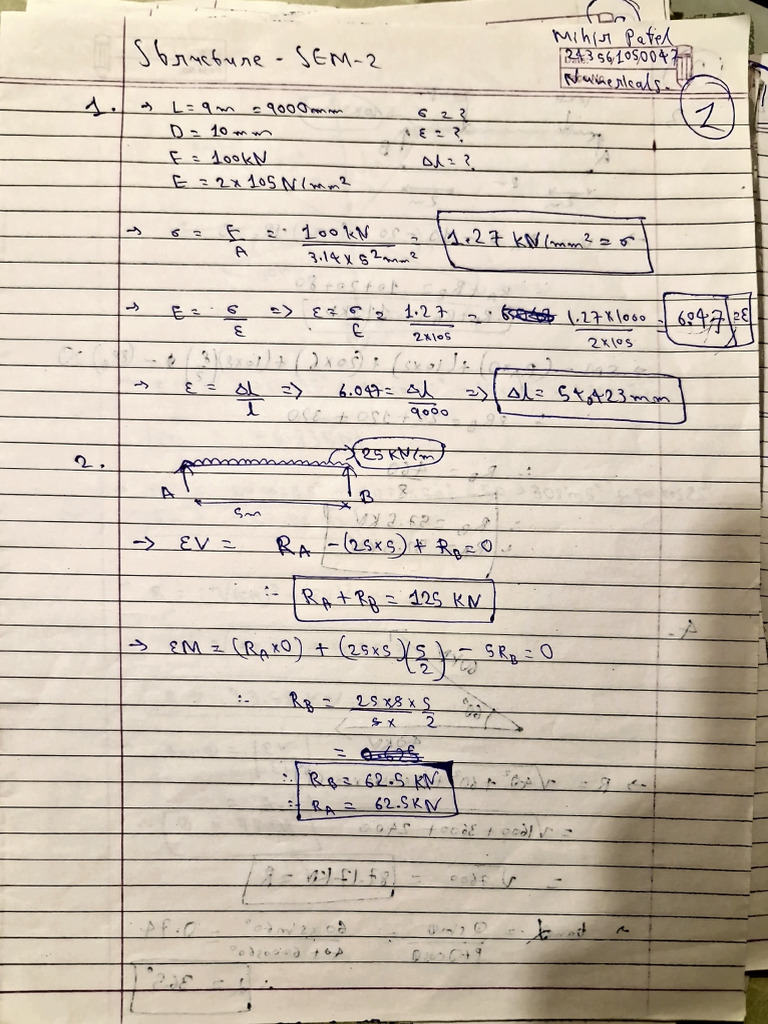 Structure - SEM-2
Mihir Patel
243561050047
Numericals.
1
1. → L = 9m = 9000mm σ = ?
D = 10mm ε = ?
F = 100kN Δl = ?
E = 2×105N/mm²
→ σ = F/A = 100KN / 3.14×5²mm² = 1.27 KN/mm² = σ
→ E = σ/ε => ε = σ/E = 1.27/2×105 = 1.27×1000/2×105 = 6.047 = ε
→ ε = Δl/l => 6.047 = Δl/9000 => Δl = 54.423mm
2. 25KN/m
A B
5m
→ ΣV = RA - (25×5) + RB = 0
∴ RA + RB = 125 KN
→ ΣM = (RA×0) + (25×5)(5/2) - 5RB = 0
∴ RB = 25×5×5 / 5×2
=
∴ RB = 62.5 KN
∴ RA = 62.5KN